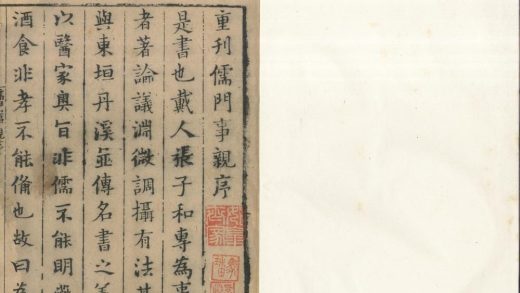 重刊儒門事親序
是書也戴人張子和專為事
者著論議淵微調攝有法其
與東垣丹溪並傳名書之義
以醫家奧旨非儒不能明藥
酒食非孝不能備也故曰為